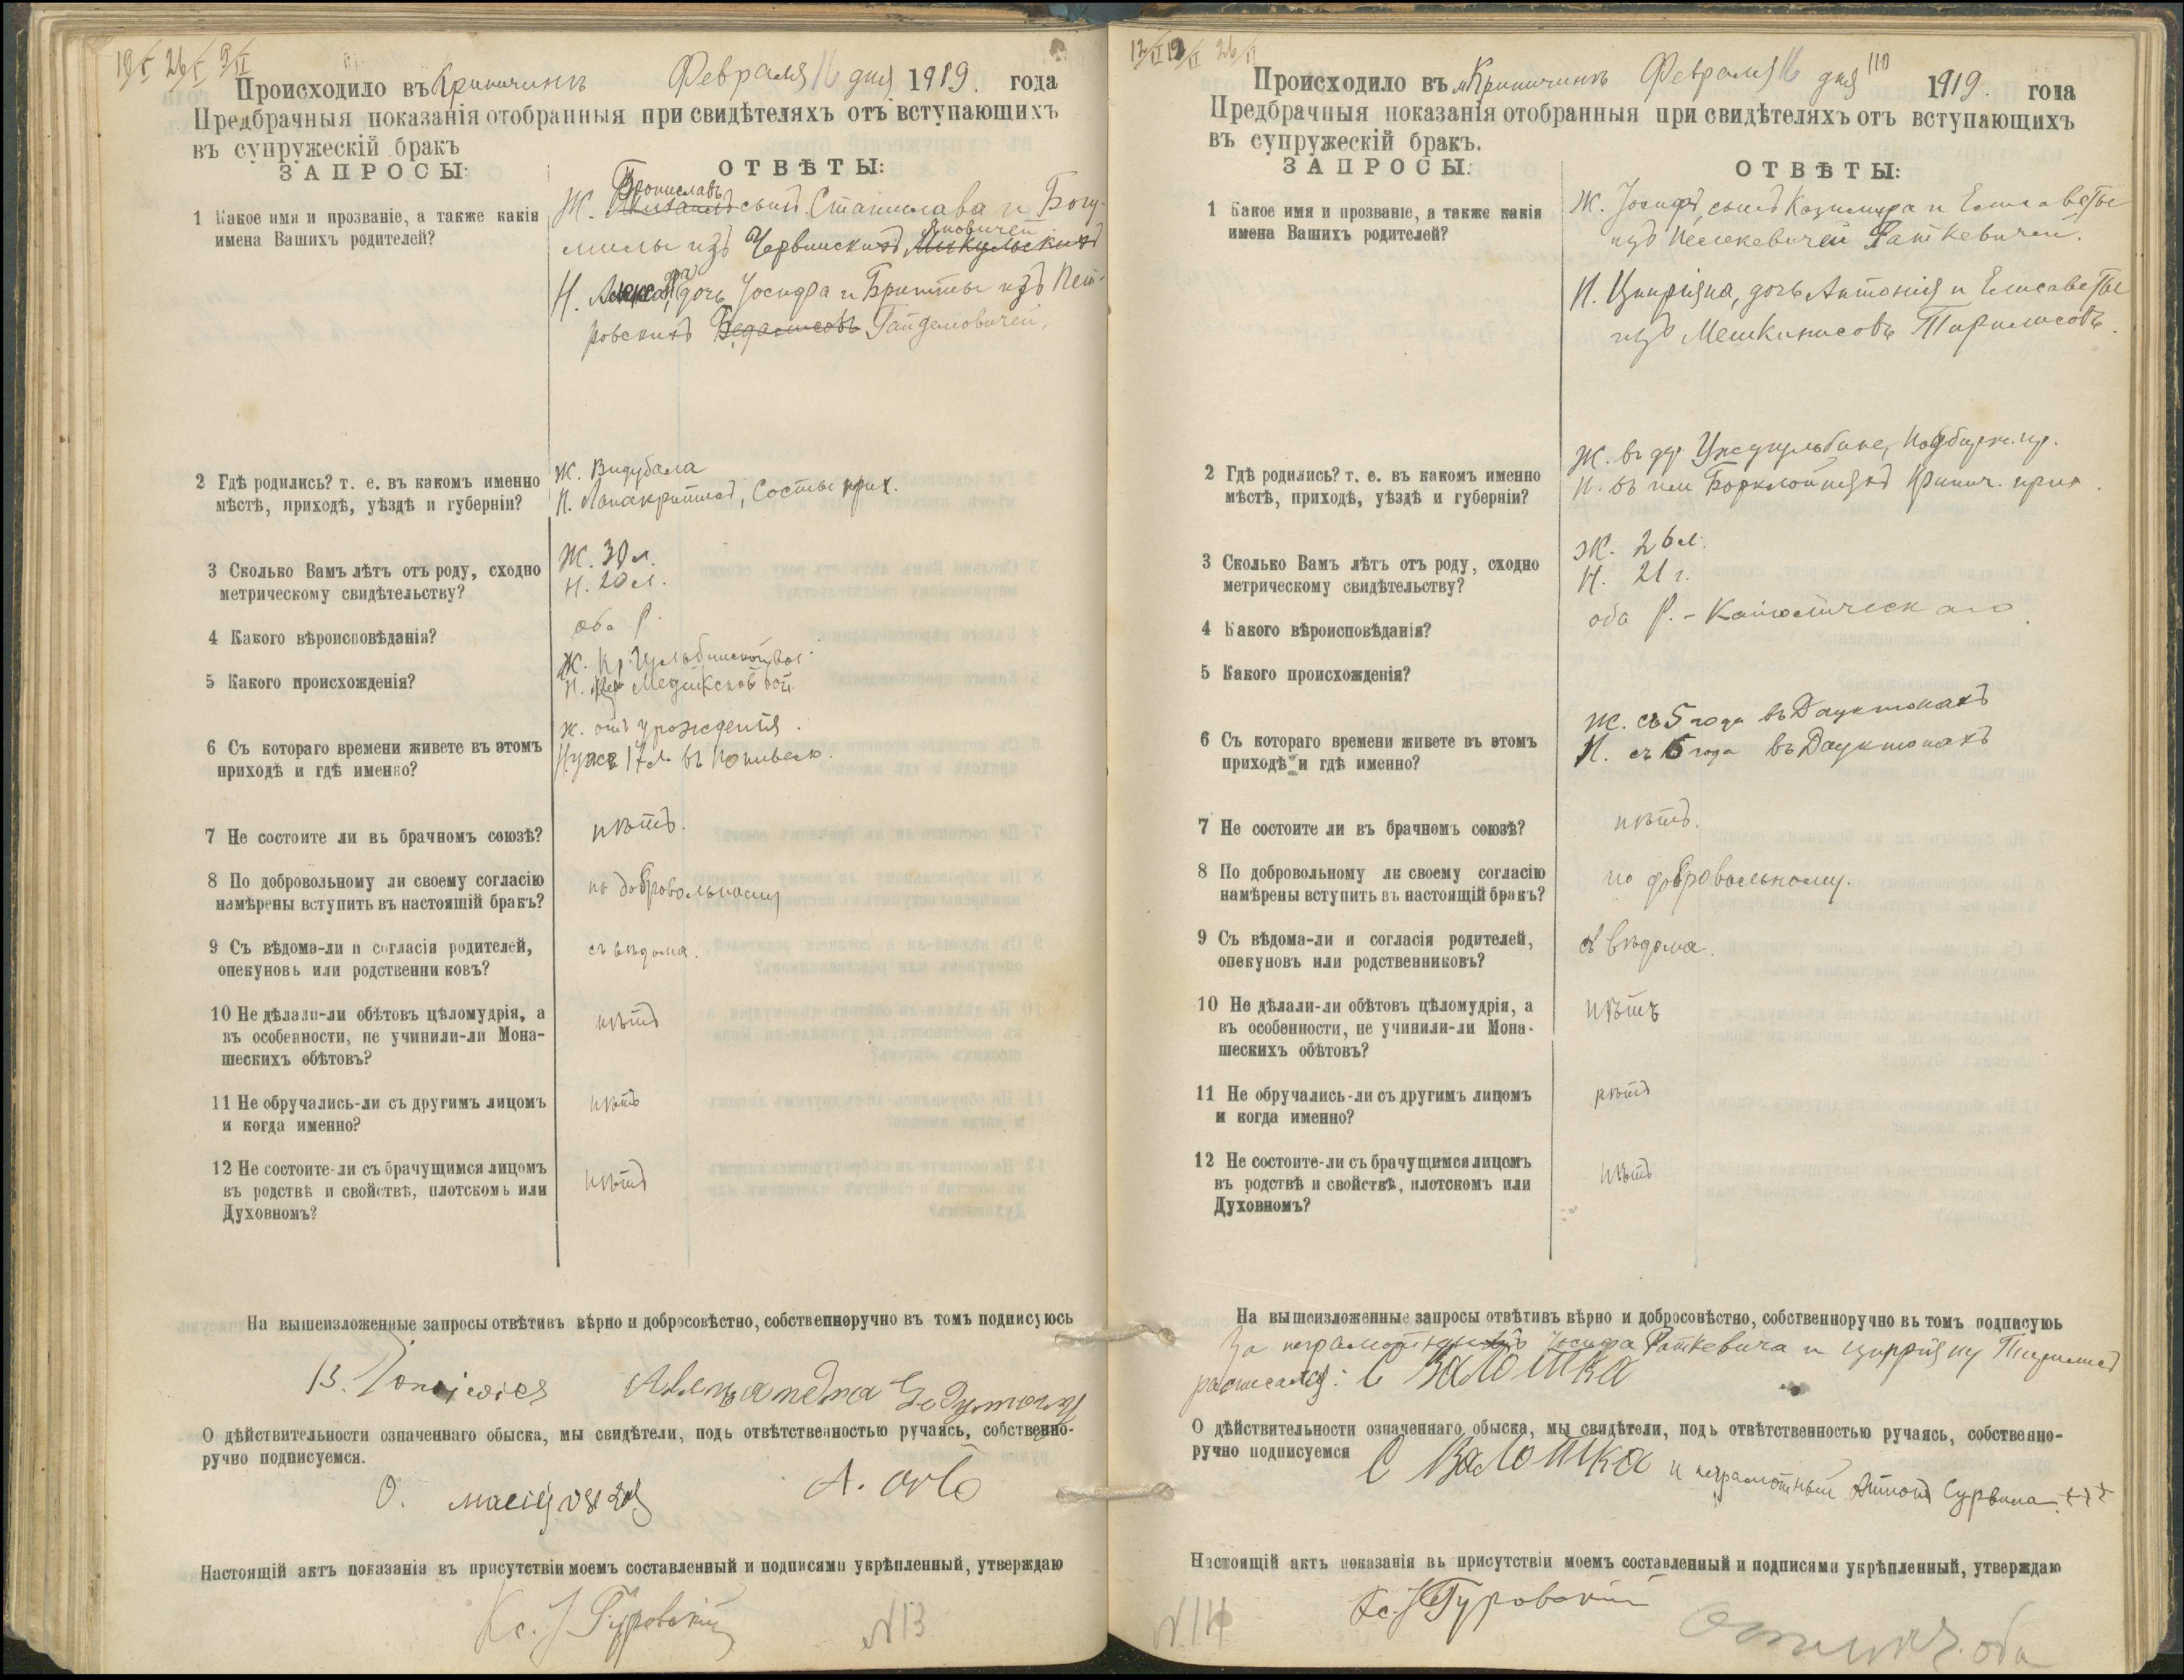 19/I 26/I 9/II
Происходило въ Криничинъ Февраля 16 дня 1919. года
Предбрачныя показанія отобранныя при свидѣтеляхъ отъ вступающихъ
въ супружескій бракъ
ЗАПРОСЫ:
ОТВѢТЫ:
1 Какое имя и прозваніе, а также какія
имена Вашихъ родителей?
Брониславъ
Ж. сынъ Станислава и Богу-
Яновичей
милы изъ Червинскихъ Микульскихъ
Н. дочь Іосифа и Бригиты изъ Пет-
ровскихъ Гайделовичей,
2 Гдѣ родились? т. е. въ какомъ именно
мѣстѣ, приходѣ, уѣздѣ и губерніи?
Ж. Видубала
Н. прих.
3 Сколько Вамъ лѣтъ отъ роду, сходно
метрическому свидѣтельству?
Ж. 30 л.
Н. 20 л.
4 Какого вѣроисповѣданія?
оба Р.
5 Какого происхожденія?
Ж. Кр.
Н.
6 Съ котораго времени живете въ этомъ
приходѣ и гдѣ именно?
Ж. отъ урожденія.
Н. уже 17 л. въ
7 Не состоите ли вь брачномъ союзѣ?
нѣтъ.
8 По добровольному ли своему согласію
намѣрены вступить въ настоящій бракъ?
по добровольному
9 Съ вѣдома-ли и согласія родителей,
опекуновь или родственни ковъ?
съ вѣдома.
10 Не дѣлали-ли обѣтовъ цѣломудрія, а
въ особенности, не учинили-ли Мона-
шескихъ обѣтовъ?
нѣтъ
11 Не обручались-ли съ другимъ лицомъ
и когда именно?
нѣтъ
12 Не состоите-ли съ брачущимся лицомъ
въ родствѣ и свойствѣ, плотскомъ или
Духовномъ?
нѣтъ
На вышеизложенные запросы отвѣтивъ вѣрно и добросовѣстно, собственноручно въ томъ подписуюсь
О дѣйствительности означеннаго обыска, мы свидѣтели, подь отвѣтственностью ручаясь, собственно-
ручно подписуемся.
Настоящій актъ показанія въ присутствіи моемъ составленный и подписями укрѣпленный, утверждаю
Кс. J Гуровскій
N 13
12/II 19/II 26/II
110
Происходило въ м. Криничинъ Февраля 16 дня 1919. года
Предбрачныя показанія отобранныя при свидѣтеляхъ отъ вступающихъ
въ супружескій бракъ.
ЗАПРОСЫ:
ОТВѢТЫ:
1 Какое имя и прозваніе, а также какія
имена Вашихъ родителей?
Ж. Іосифъ, сынъ Казимира и Елисаветы
изъ Пелекевичей Раткевичей.
Н. Ципріяна, дочь Антонія и Елисаветы
изъ Мешкинисовъ
2 Гдѣ родились? т. е. въ какомъ именно
мѣстѣ, приходѣ, уѣздѣ и губерніи?
Ж. въ др.
Н. въ им. Кринич. прих.
3 Сколько Вамъ лѣтъ отъ роду, сходно
метрическому свидѣтельству?
Ж. 26 л.
Н. 21 г.
4 Какого вѣроисповѣданія?
оба Р.-Католическаго
5 Какого происхожденія?
6 Съ котораго времени живете въ этомъ
приходѣ и гдѣ именно?
Ж. съ 5 года въ Дауктонахъ
Н. съ 6 года въ Дауктонахъ
7 Не состоите ли въ брачномъ союзѣ?
нѣтъ.
8 По добровольному ли своему согласію
намѣрены вступить въ настоящій бракъ?
по добровольному.
9 Съ вѣдома-ли и согласія родителей,
опекуновъ или родственниковъ?
съ вѣдома.
10 Не дѣлали-ли обѣтовъ цѣломудрія, а
въ особенности, не учинили-ли Мона-
шескихъ обѣтовъ?
нѣтъ
11 Не обручались-ли съ другимъ лицомъ
и когда именно?
нѣтъ
12 Не состоите-ли съ брачущимся лицомъ
въ родствѣ и свойствѣ, плотскомъ или
Духовномъ?
нѣтъ
На вышеизложенные запросы отвѣтивъ вѣрно и добросовѣстно, собственноручно въ томъ подписуюь
За неграмотныхъ Іосифа Раткевича и Ципріяну
расписался: С Валотка
О дѣйствительности означеннаго обыска, мы свидѣтели, подь отвѣтственностью ручаясь, собственно-
ручно подписуемся С Валотка и неграмотный Антонъ Сурвила. +++
Настоящій актъ показанія вь присутствіи моемъ составленный и подписями укрѣпленный, утверждаю
Кс. J Гуровскій
N 14